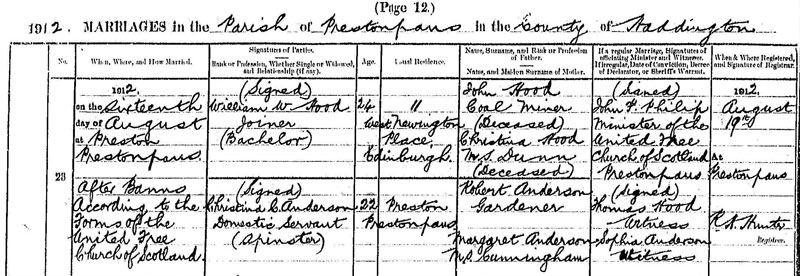 (Page 12.)
1912. MARRIAGES in the Parish of Prestonpans in the County of Haddington
No.
When, Where, and How Married.
Signatures of Parties.
Rank or Profession, Whether Single or Widowed, and Relationship (if any).
Age.
Usual Residence.
Name, Surname, and Rank or Profession of Father.
Name, and Maiden Surname of Mother.
If a regular Marriage, Signatures of officiating Minister and Witnesses.
If irregular, Date of Conviction, Decree of Declarator, or Sheriff's Warrant.
When & Where Registered, and Signature of Registrar.
23
1912.
on the Sixteenth
day of August
at Preston
Prestonpans.
After Banns
According to the
Forms of the
United Free
Church of Scotland.
(Signed)
William W. Hood
Joiner
(Bachelor)
(Signed)
Christina C. Anderson
Domestic Servant
(Spinster)
24
22
11
West Newington
Place,
Edinburgh.
Preston
Prestonpans
John Hood
Coal Miner
(Deceased)
Christina Hood
M.S. Dunn
(Deceased)
Robert Anderson
Gardener
Margaret Anderson
M.S. Cunningham
(Signed)
John P. Philip
Minister of the
United Free
Church of Scotland
Prestonpans
(Signed)
Thomas Hood
Witness
Sophia Anderson
Witness
1912.
August
19th
At
Prestonpans
Hunter
Registrar.